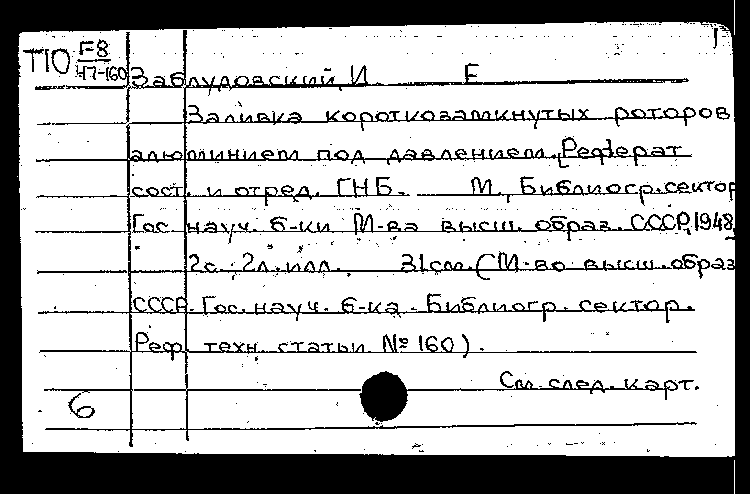 Т10 F8
47-160 Заблудовский, И. Е
Заливка короткозамкнутых роторов
алюминием под давлением. [Реферат
сост. и отред. ГНБ. М., Библиогр.сектор
Гос. науч. б-ки М-ва высш. образ. СССР, 1948
2с., 2л.илл. 31см. (М-во высш. образ
СССР. Гос. науч. б-ка. Библиогр. сектор.
Реф. техн. статьи № 160).
См. след. карт.
6